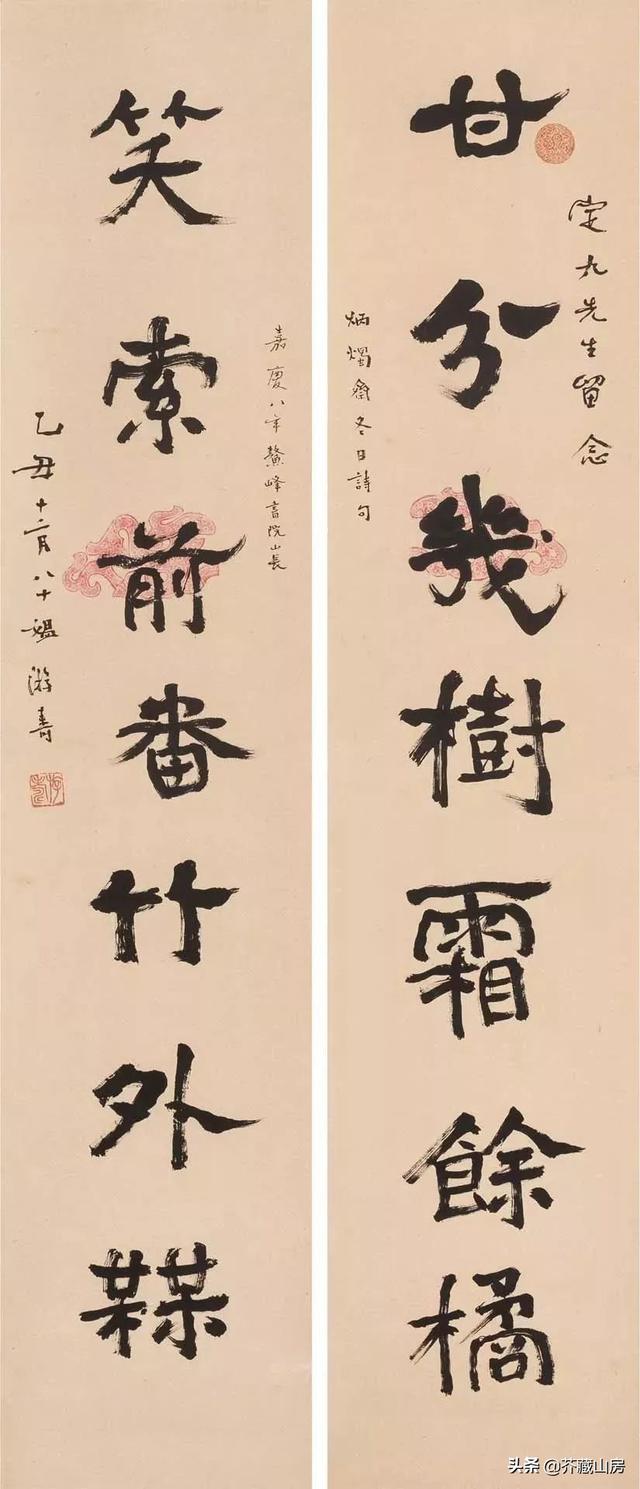 定九先生留念
甘分幾樹霜餘橘
炳燭齋冬日詩句
嘉慶八年鰲峰書院山長
笑索前番竹外槑
乙丑十二月八十媪游寿
头条 @芥藏山房